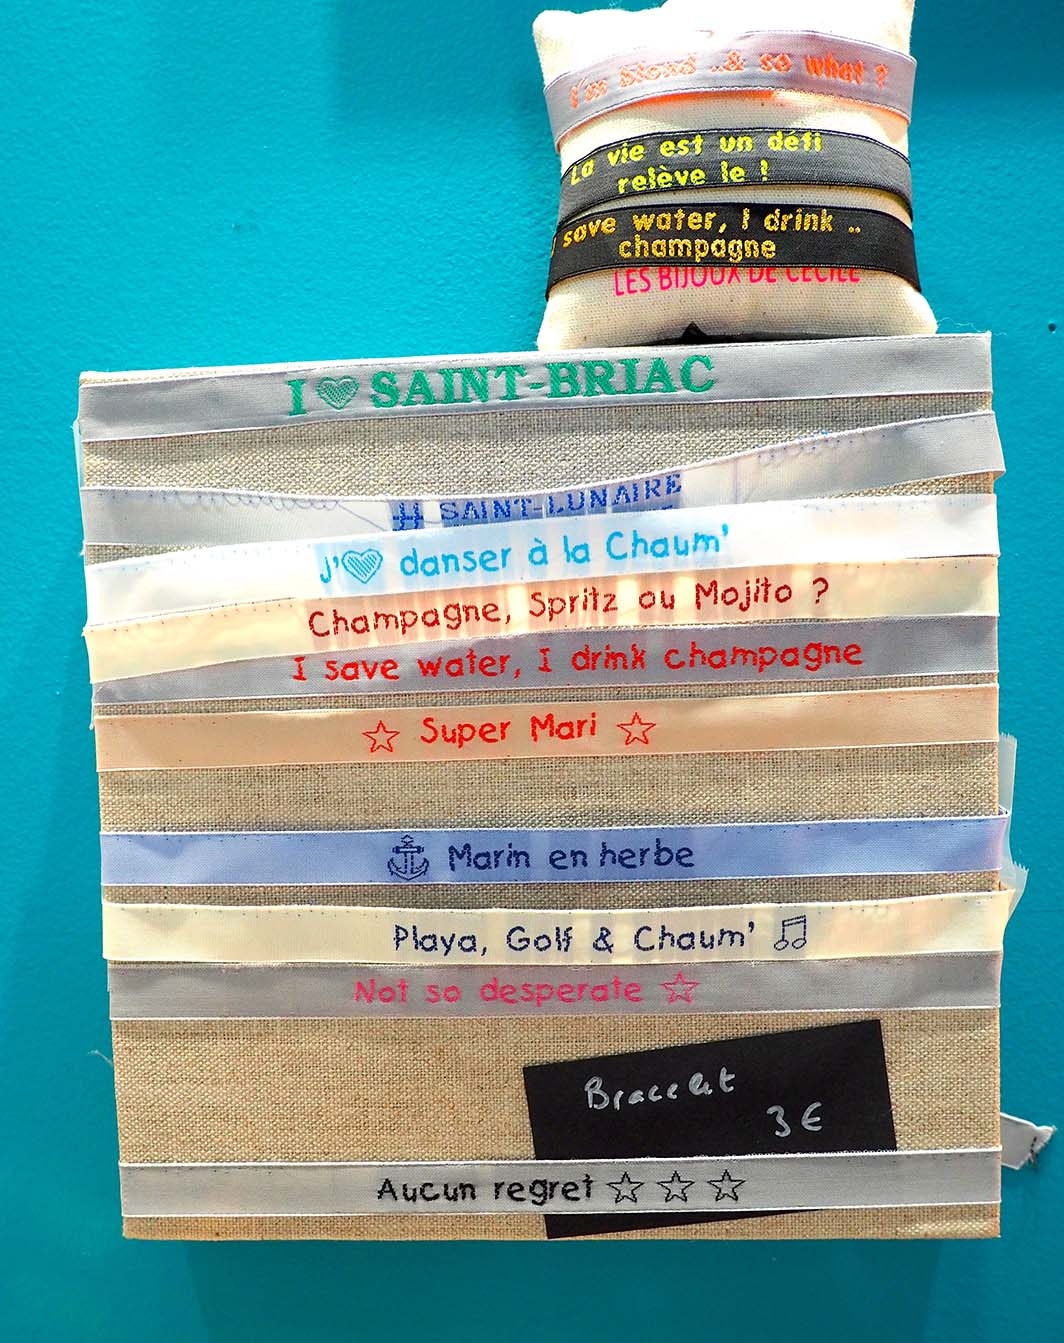 I'm blond ..& so what ?
La vie est un défi
relève le !
save water, I drink ..
champagne
LES BIJOUX DE CÉCILE
I SAINT-BRIAC
SAINT-LUNAIRE
J' danser à la Chaum'
Champagne, Spritz ou Mojito ?
I save water, I drink champagne
Super Mari
Marin en herbe
Playa, Golf & Chaum'
Not so desperate
Bracelet
3€
Aucun regret